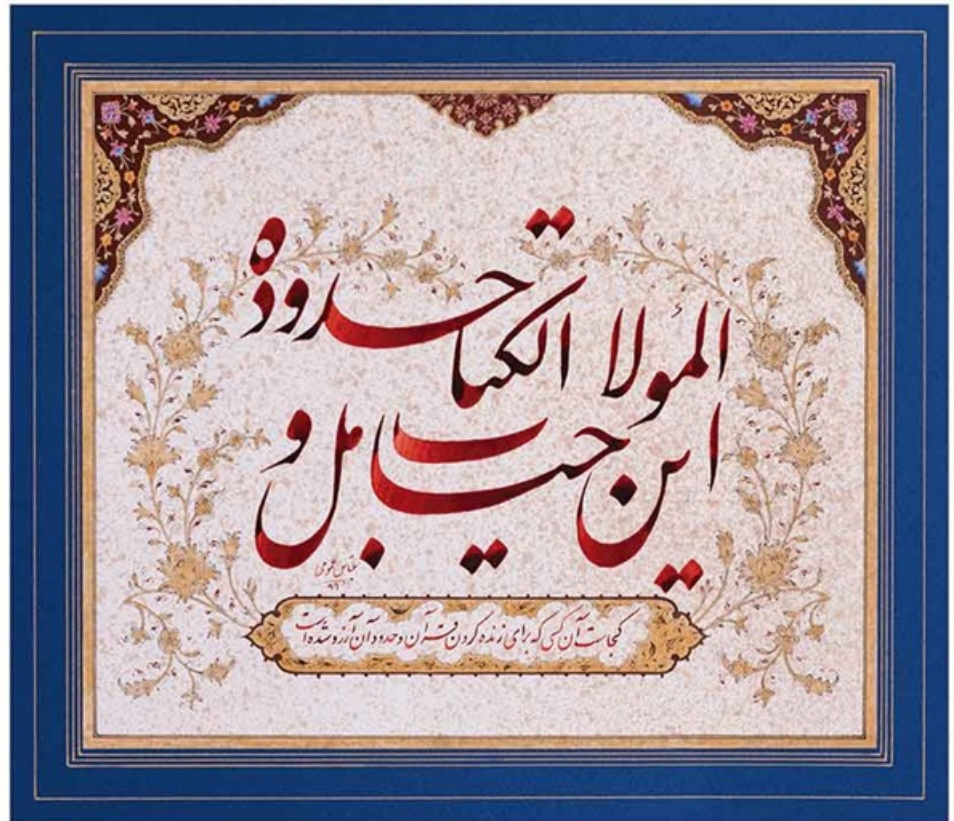 این المؤمل لاحیاء الکتاب و حدوده
کجاست آن کسی که برای زنده کردن قرآن و حدود آن آرزو شده است